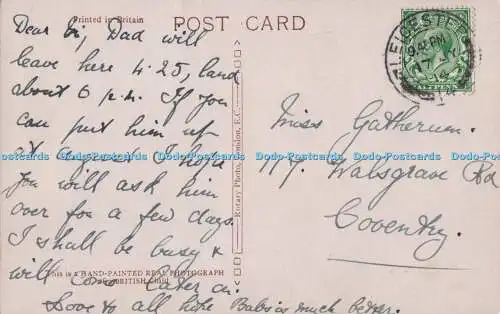 Printed in Britain
POST CARD
LEICESTER
9.45 PM
14
Dear Si, Dad will
leave here 4.25, land
about 6 p.m. If you
can put him up
I hope
you will ask him
over for a few days.
I shall be busy &
will come later on.
Love to all hope Babs is much better.
Rotary Photo, London, E.C.
This is a HAND-PAINTED REAL PHOTOGRAPH
BRITISH
Miss Gatherum.
117. Walsgrave Rd
Coventry.
Dodo-Postcards Dodo-Postcards Dodo-Postcards Dodo-Postcards Dodo-Postcards Dodo-Postcards